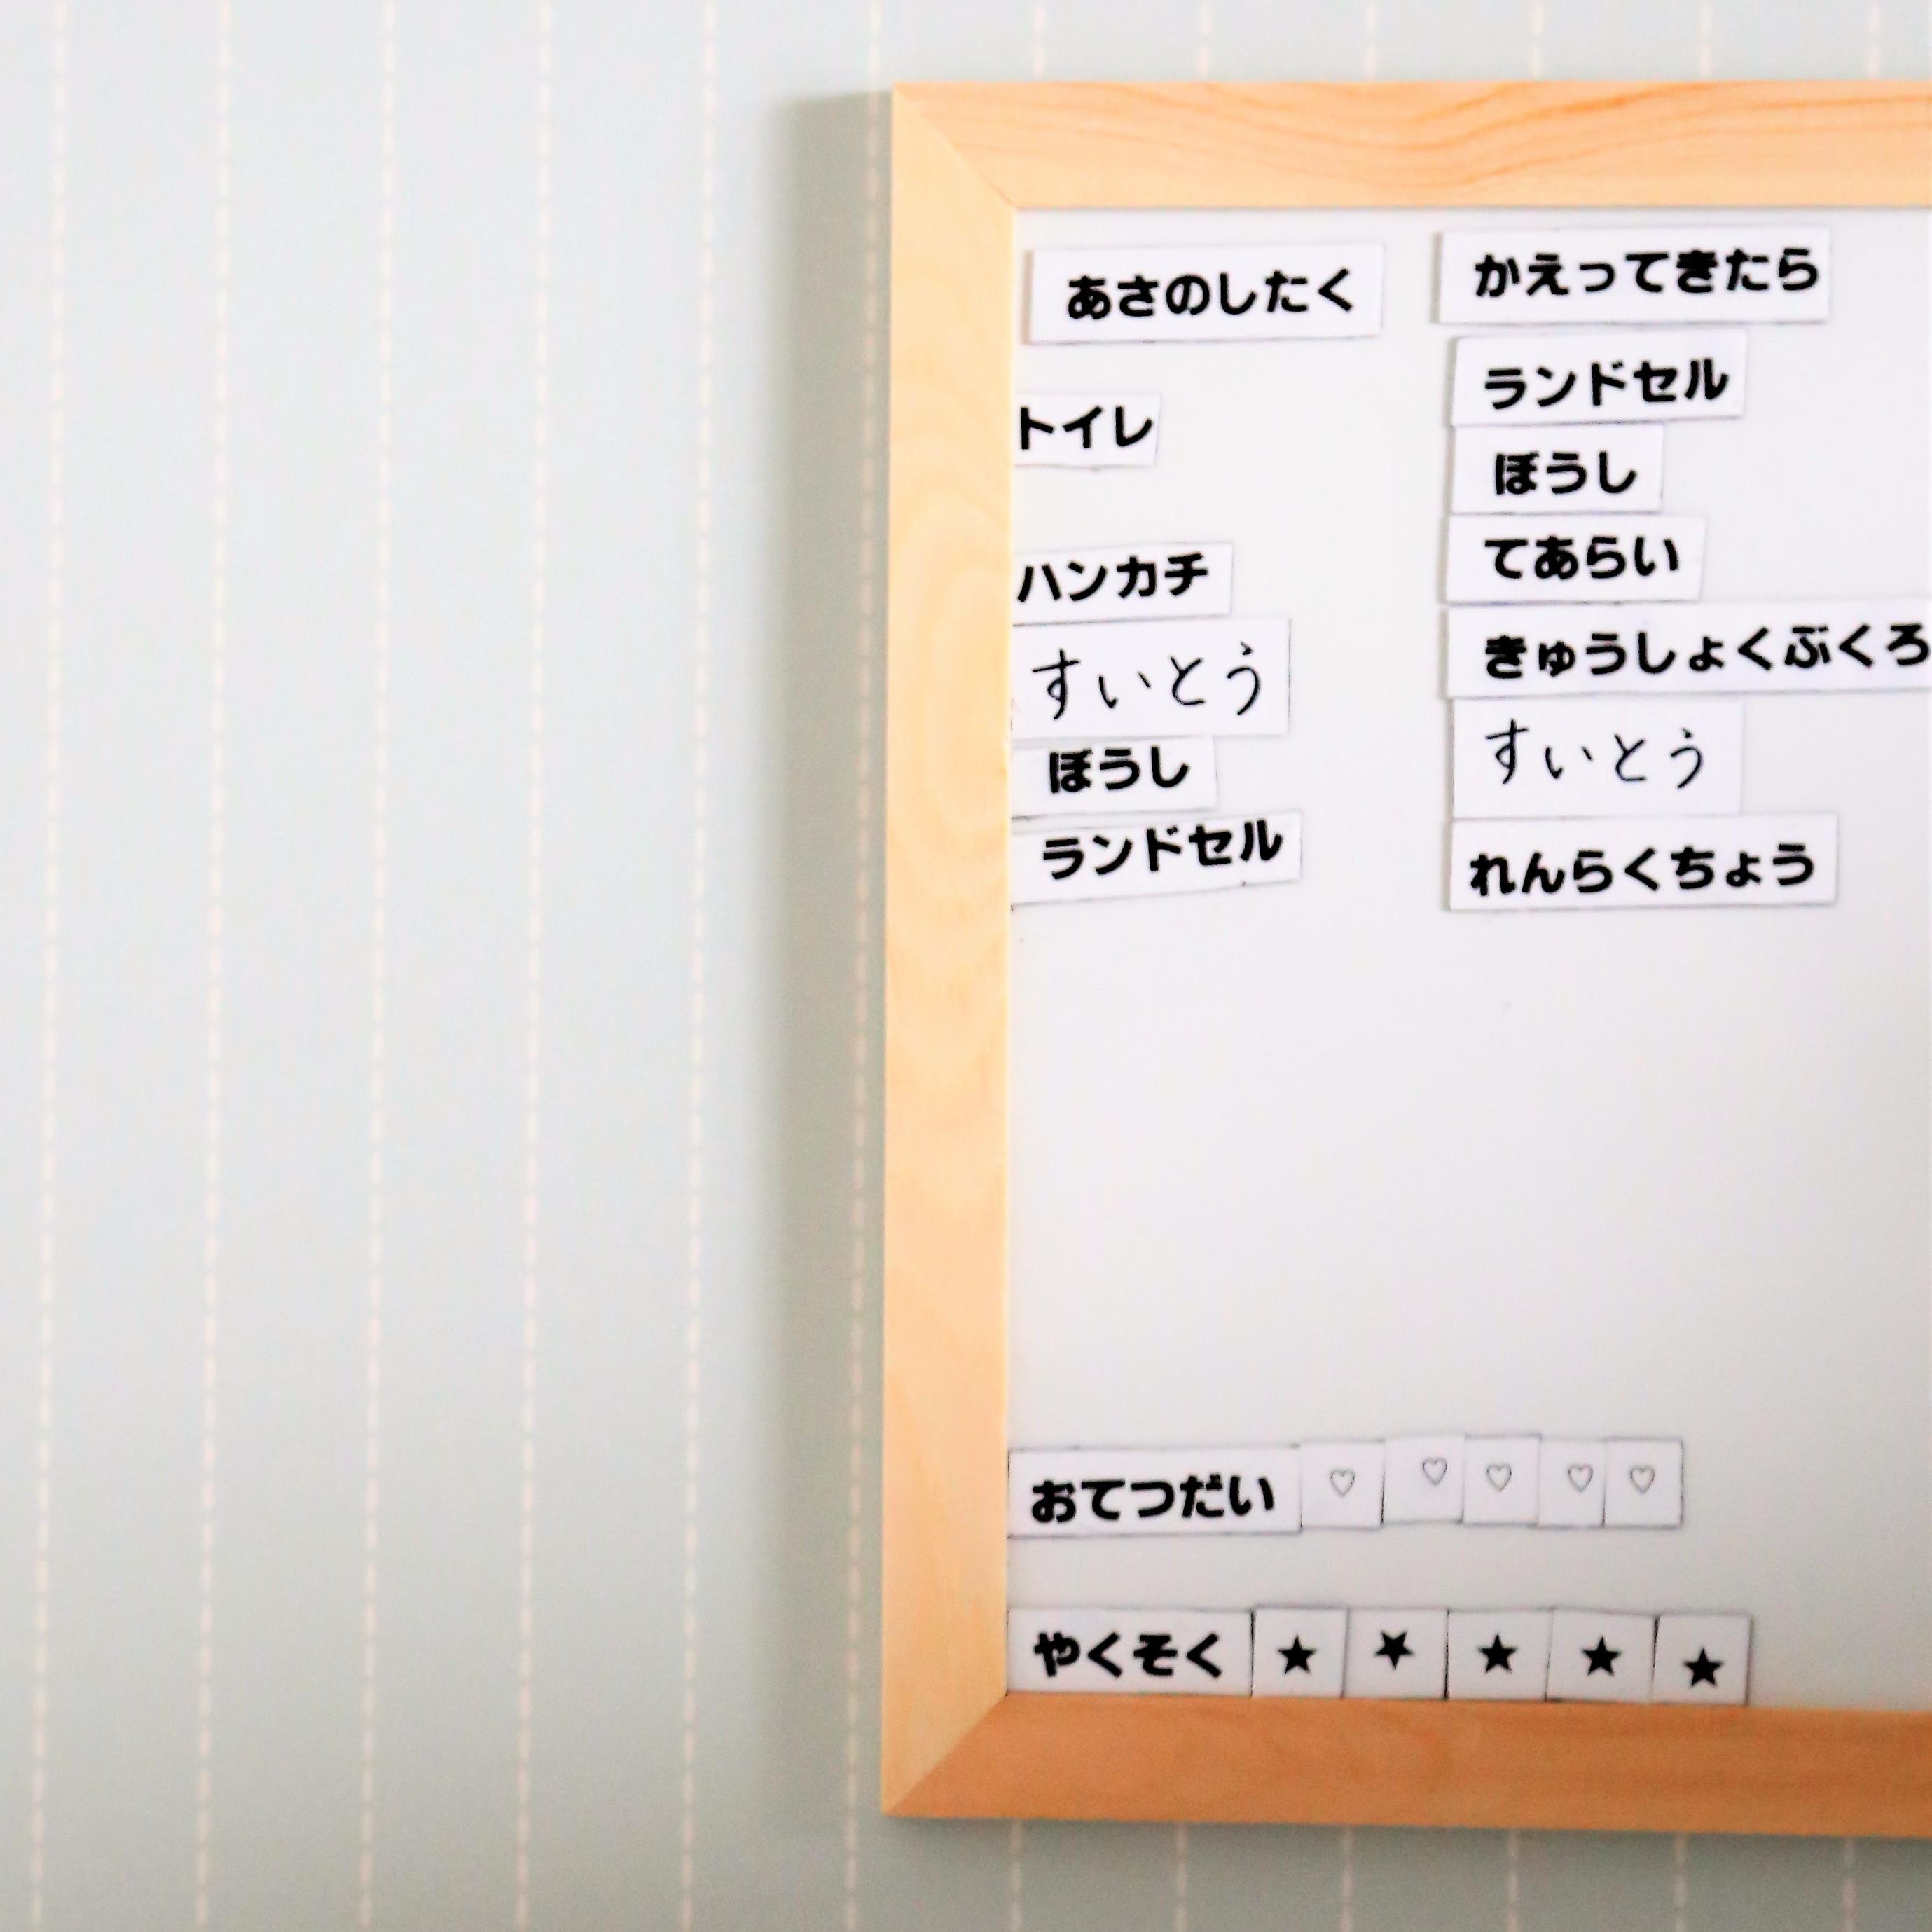 あさのしたく
トイレ
ハンカチ
すいとう
ぼうし
ランドセル
かえってきたら
ランドセル
ぼうし
てあらい
きゅうしょくぶくろ
すいとう
れんらくちょう
おてつだい ♡ ♡ ♡ ♡ ♡
やくそく ★ ★ ★ ★ ★